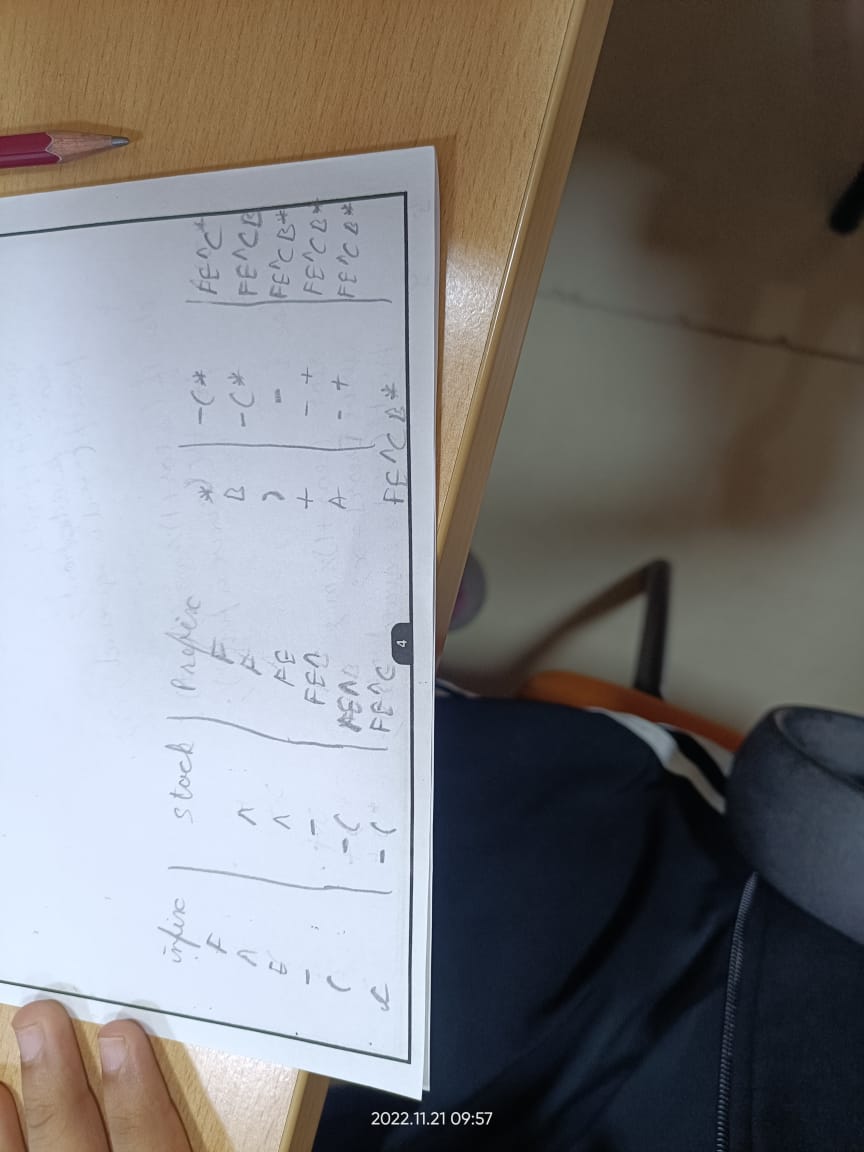 infix stack Prefix
F F
^ ^ F
E ^ FE
- - FE^
( -( FE^
C -( FE^C
* -(* FE^C*
B -(* FE^CB
) - FE^CB*
+ - + FE^CB*
A - + FE^CB*
FE^CB*
4
2022.11.21 09:57